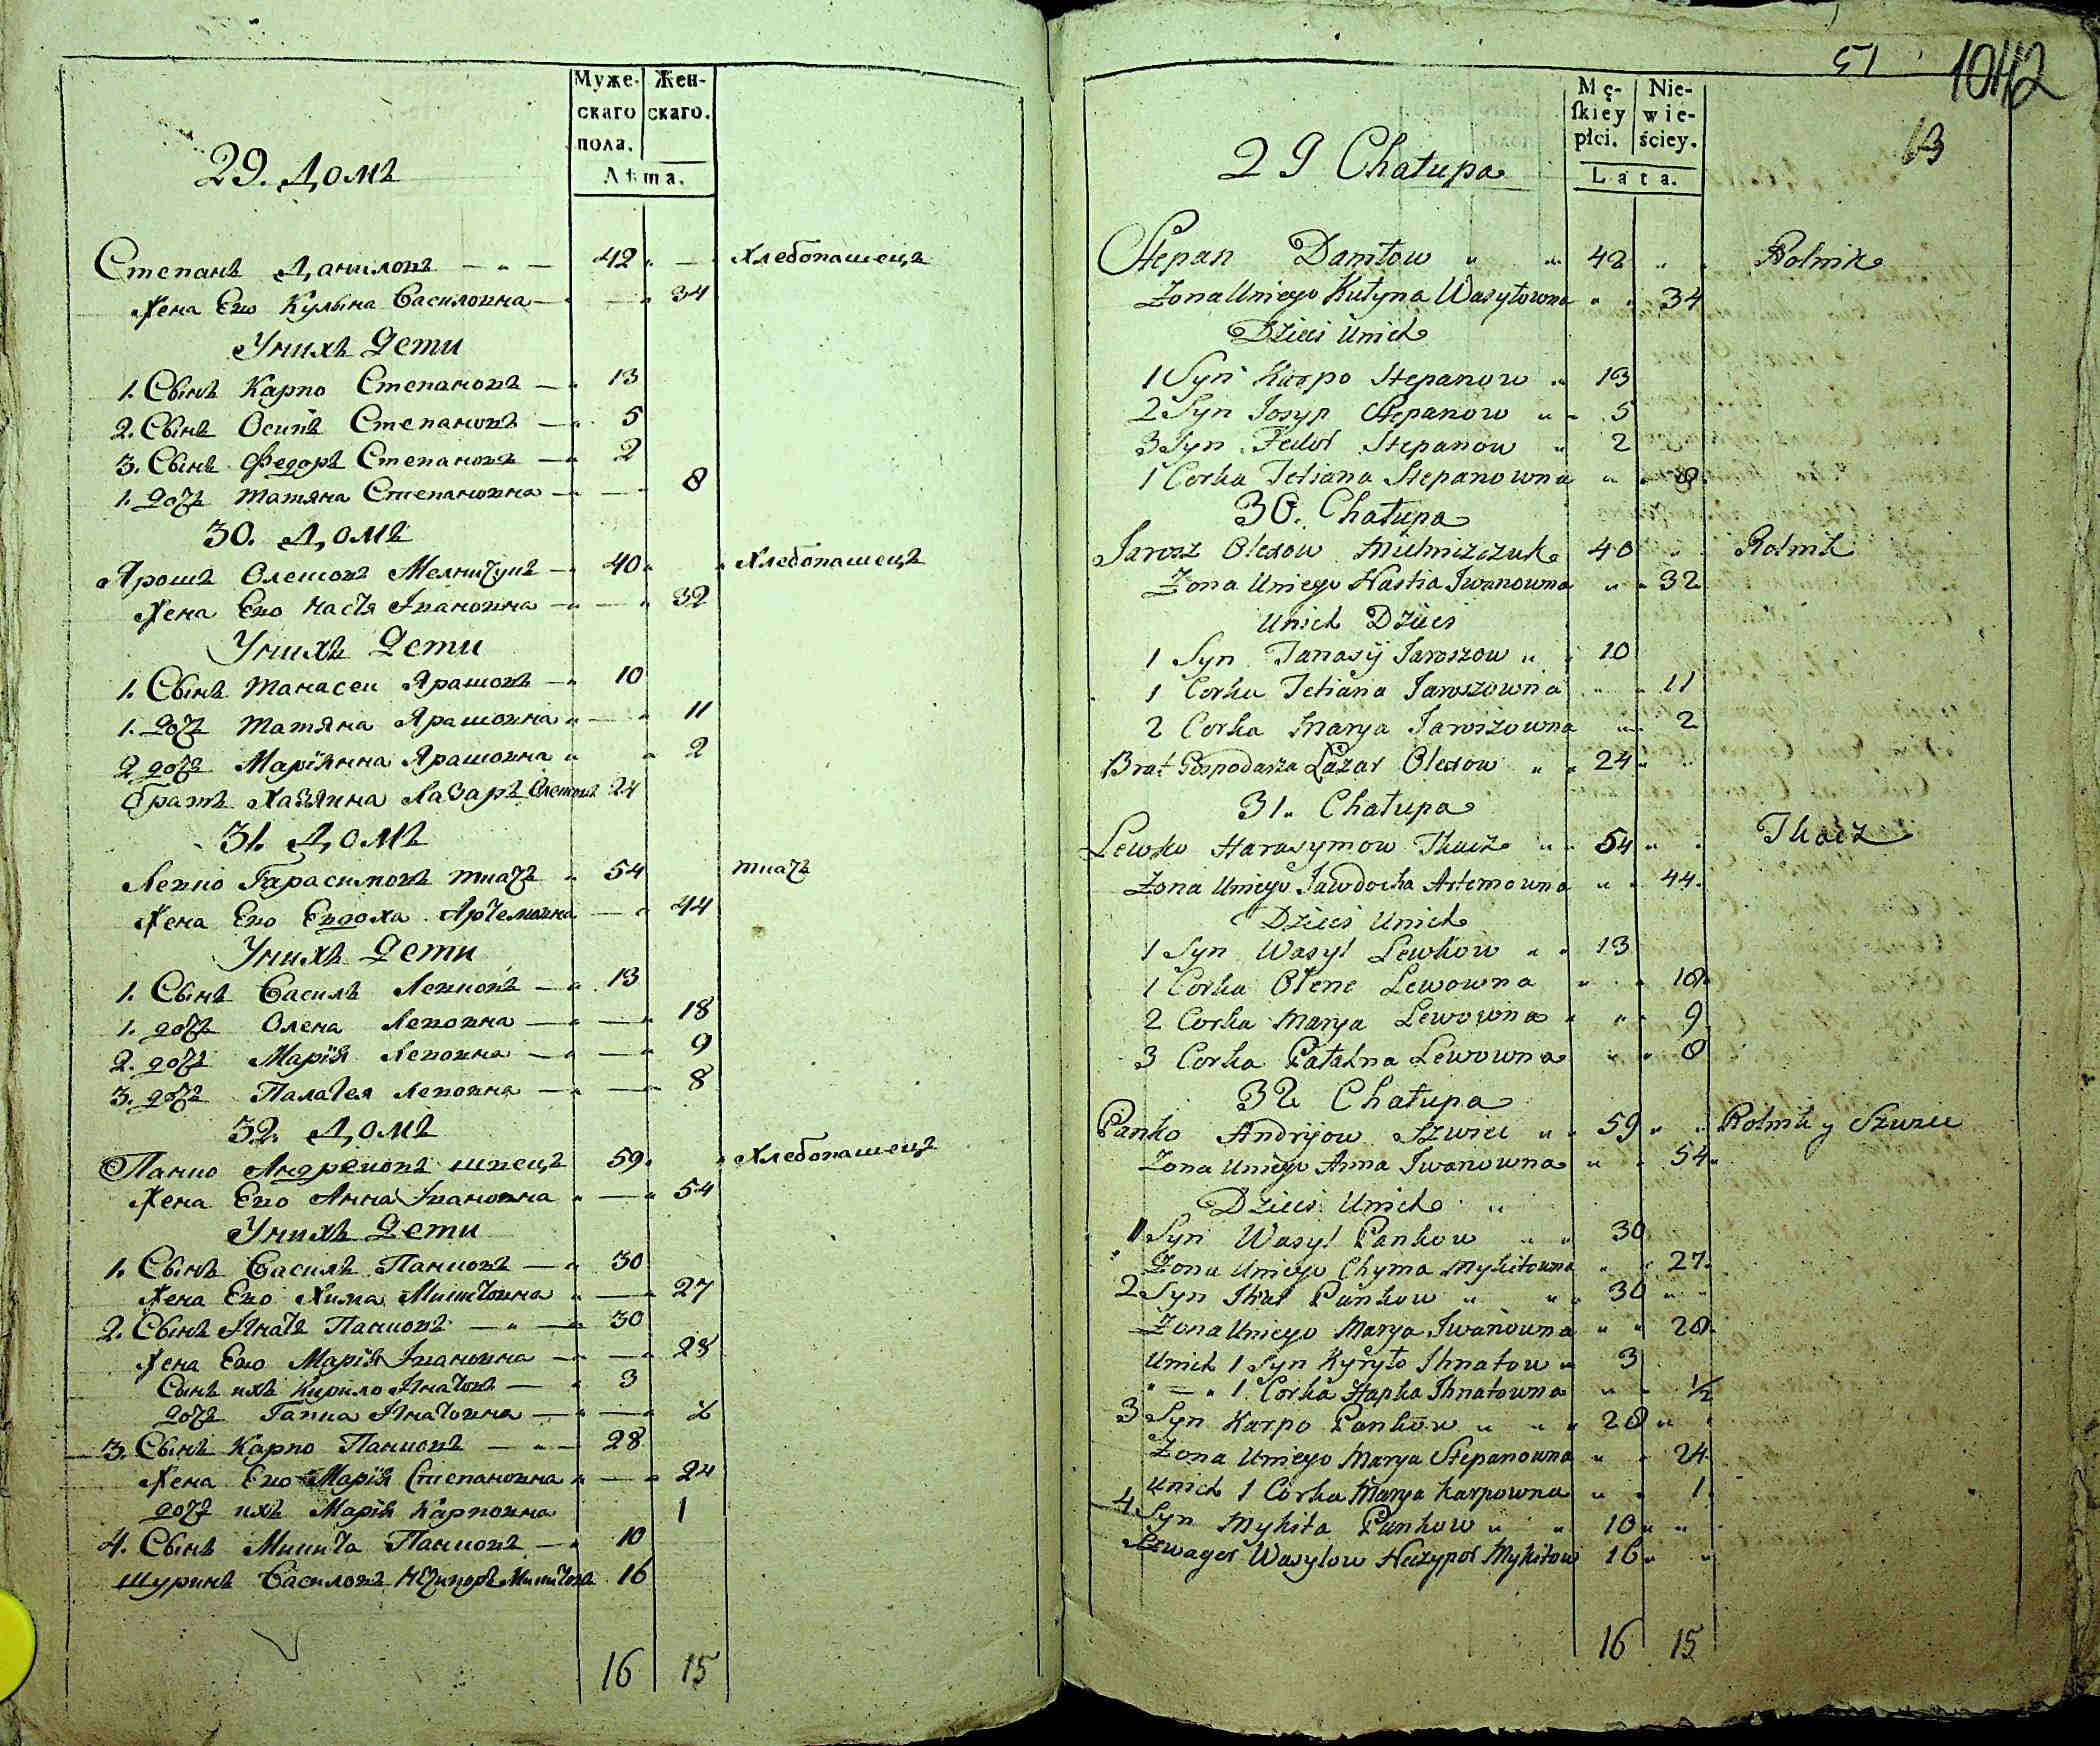 Муже-
скаго
пола.
Жен-
скаго.
Лѣта.
29. Домъ
Степанъ Даниловъ — „ — 42 „ — Хлебопашецъ
Жена Его Кулына Василовна — „ — „ 34
У нихъ Дети
1. Сынъ Карпо Степановъ — „ 13
2. Сынъ Осипъ Степановъ — „ 5
3. Сынъ Федоръ Степановъ — „ 2
1. дочь Татяна Степановна — „ — „ 8
30. Домъ
Ярошъ Олешовъ Мелничукъ — „ 40 „ „ Хлебопашецъ
Жена Его Настя Ивановна — „ — „ 32
У нихъ Дети
1. Сынъ Танасеи Ярашовъ — „ 10
1. дочь Татяна Ярашовна „ — „ 11
2 дочь Маріянна Ярашовна „ „ 2
братъ Хазяина Лазаръ Олешовъ 24
31. Домъ
Левко Гарасимовъ ткачъ „ 54 ткачъ
Жена Его Евдоха Артемовна — „ 44
У нихъ Дети
1. Сынъ Василь Левковъ — „ 13
1. дочь Олена Левовна — „ — „ 18
2. дочь Марія Левовна — „ — „ 9
3. дочь Палагея Левовна — „ — „ 8
32. Домъ
Панко Андреювъ швецъ 59 „ „ Хлебопашецъ
Жена Его Анна Ивановна „ — „ 54
У нихъ Дети
1. Сынъ Василь Панковъ — „ 30
Жена Его Хима Микитовна „ — „ 27
2. Сынъ Игнатъ Панковъ — „ — 30
Жена Его Марія Ивановна — „ — „ 28
Сынъ ихъ Кирило Игнатовъ — „ 3
дочь Гапка Игнатовна — „ — „ ½
3. Сынъ Карпо Панковъ — „ — 28
Жена Его Марія Степановна „ — „ 24
дочь ихъ Марія Карповна 1
4. Сынъ Микита Панковъ — „ 10
шуринъ Василовъ Нечипоръ Микитовъ 16
16 15
51
1042
13
Mę-
ſkiey
płci.
Nie-
wie-
ściey.
Lata.
29 Chałupa
Stepan Daniłow „ „ 42 „ „ Rolnik
Żona Uniego Kułyna Wasyłowna „ „ 34
Dzieci Unich
1 Syn Karpo Stepanow „ 13
2 Syn Josyp Stepanow „ „ 5
3 Syn Fedor Stepanow „ 2
1 Corka Tetiana Stepanowna „ „ 8
30. Chałupa
Jarosz Olexow Mielniczuk 40 „ Rolnik
Żona Uniego Nastia Iwanowna „ „ 32
Unich Dzieci
1 Syn Tanasij Jaroszow „ „ 10
1 Corka Tetiana Jaroszowna „ „ 11
2 Corka Marya Jaroszowna „ 2
Brat Gospodarza Łazar Olexow „ „ 24 „ „
31. Chałupa
Lewko Harasymow Tkacz „ „ 54 „ „ Tkacz
Żona Uniego Jawdocha Artemowna „ „ 44
Dzieci Unich
1 Syn Wasyl Lewkow „ „ 13
1 Corka Ołene Lewowna „ „ 18
2 Corka Marya Lewowna „ „ 9
3 Corka Pałahna Lewowna „ „ 8
32 Chałupa
Panko Andryiow Szwiec „ „ 59 „ „ Rolnik y Szwiec
Żona Uniego Anna Iwanowna „ „ 54
Dzieci Unich „
1 Syn Wasyl Pankow „ „ 30
Żona Uniego Chyma Mykitowna „ „ 27
2 Syn Ihnat Pankow „ „ „ 30 „ „
Żona Uniego Marya Iwanowna „ „ 28
Unich 1 Syn Kyryło Ihnatow „ 3
„ — „ 1 Corka Hapka Ihnatowna „ „ ½
3 Syn Karpo Pankow „ „ „ 28 „ „
Żona Uniego Marya Stepanowna „ „ 24
Unich 1 Corka Marya Karpowna „ „ 1
4 Syn Mykita Pankow „ „ 10 „ „
Szwager Wasylow Neczypor Mykitow 16 „ „
16 15